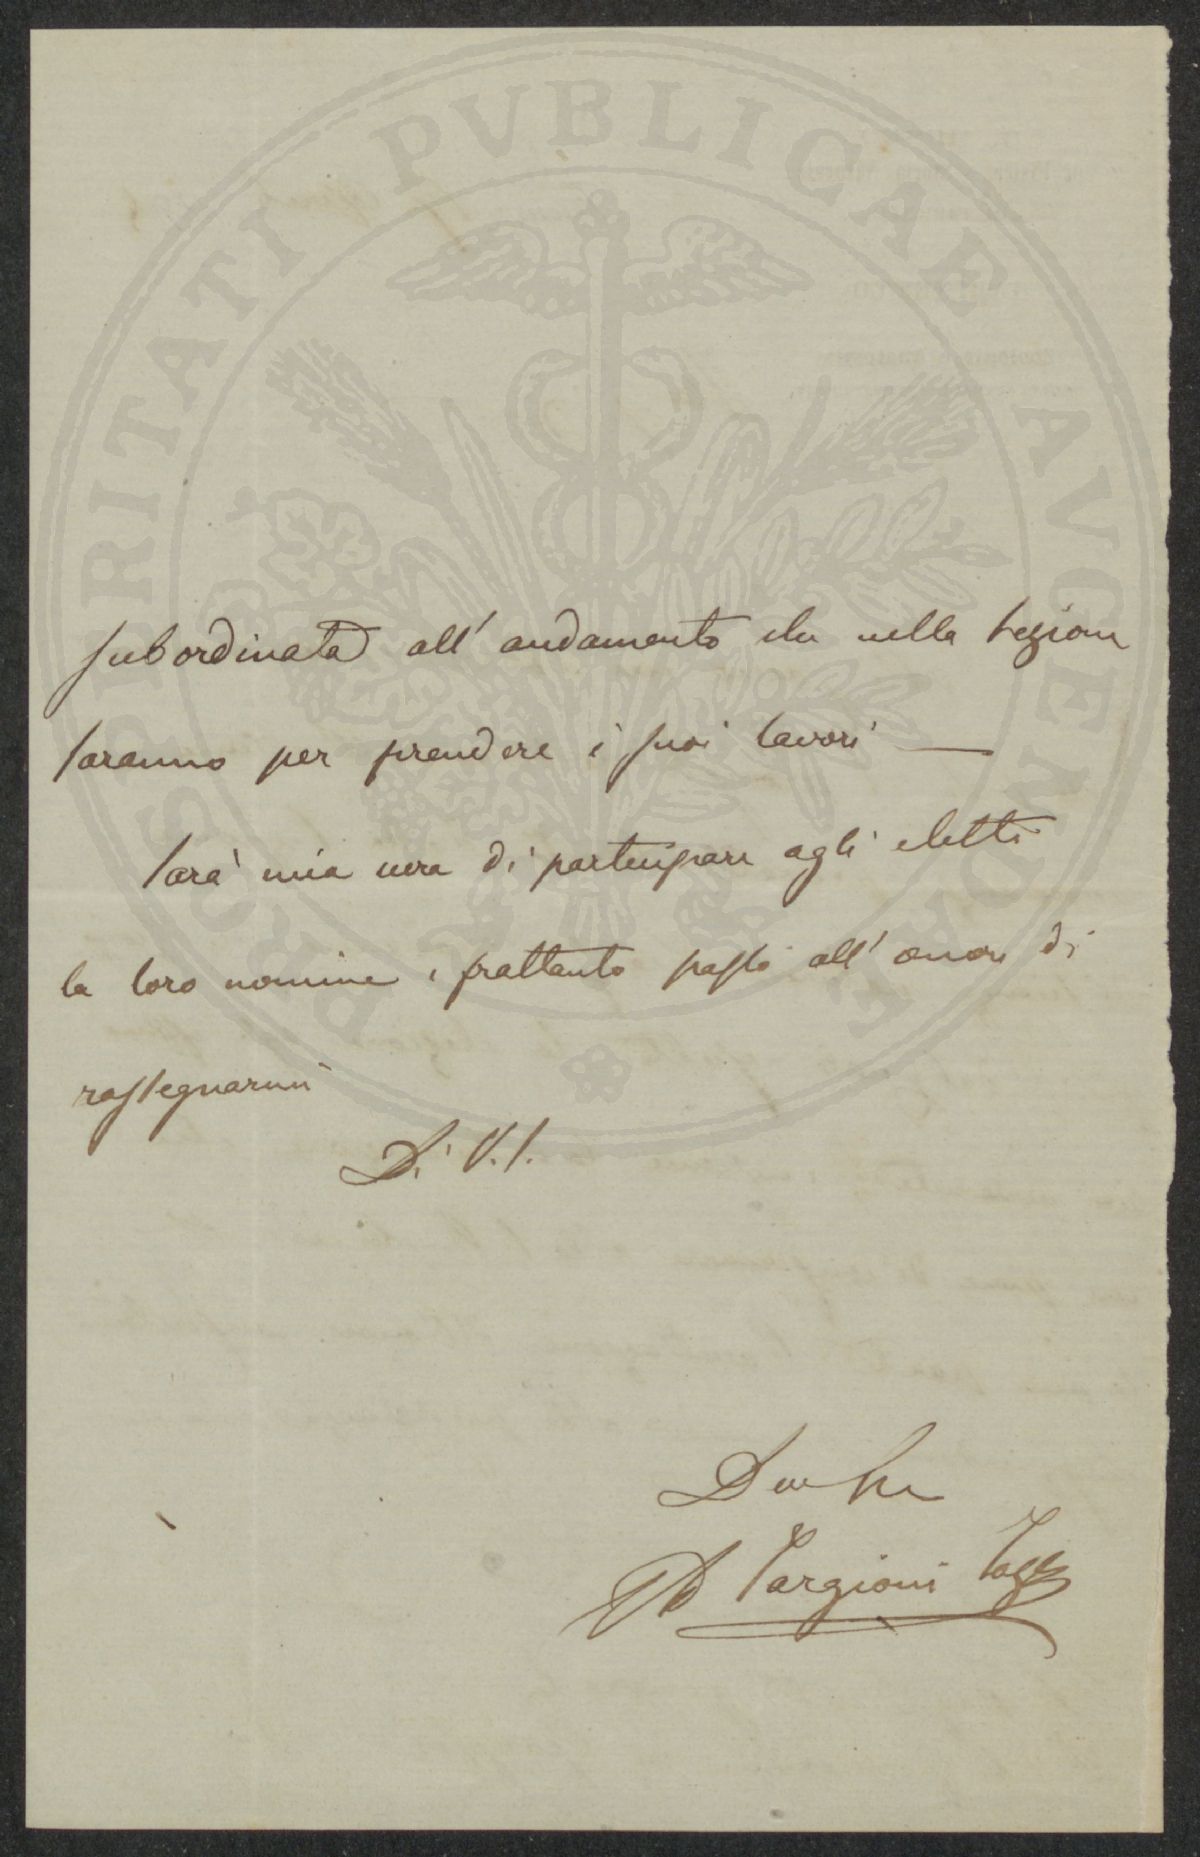 PROSPERITATI PVBLICAE AVGENDAE
subordinata all' andamento che nella Sezione
saranno per prendere i suoi lavori —
Sarà mia cura di partecipare agli eletti
la loro nomine, frattanto passo all' onore di
rassegnarmi
Di V. S.
Targioni Tozz